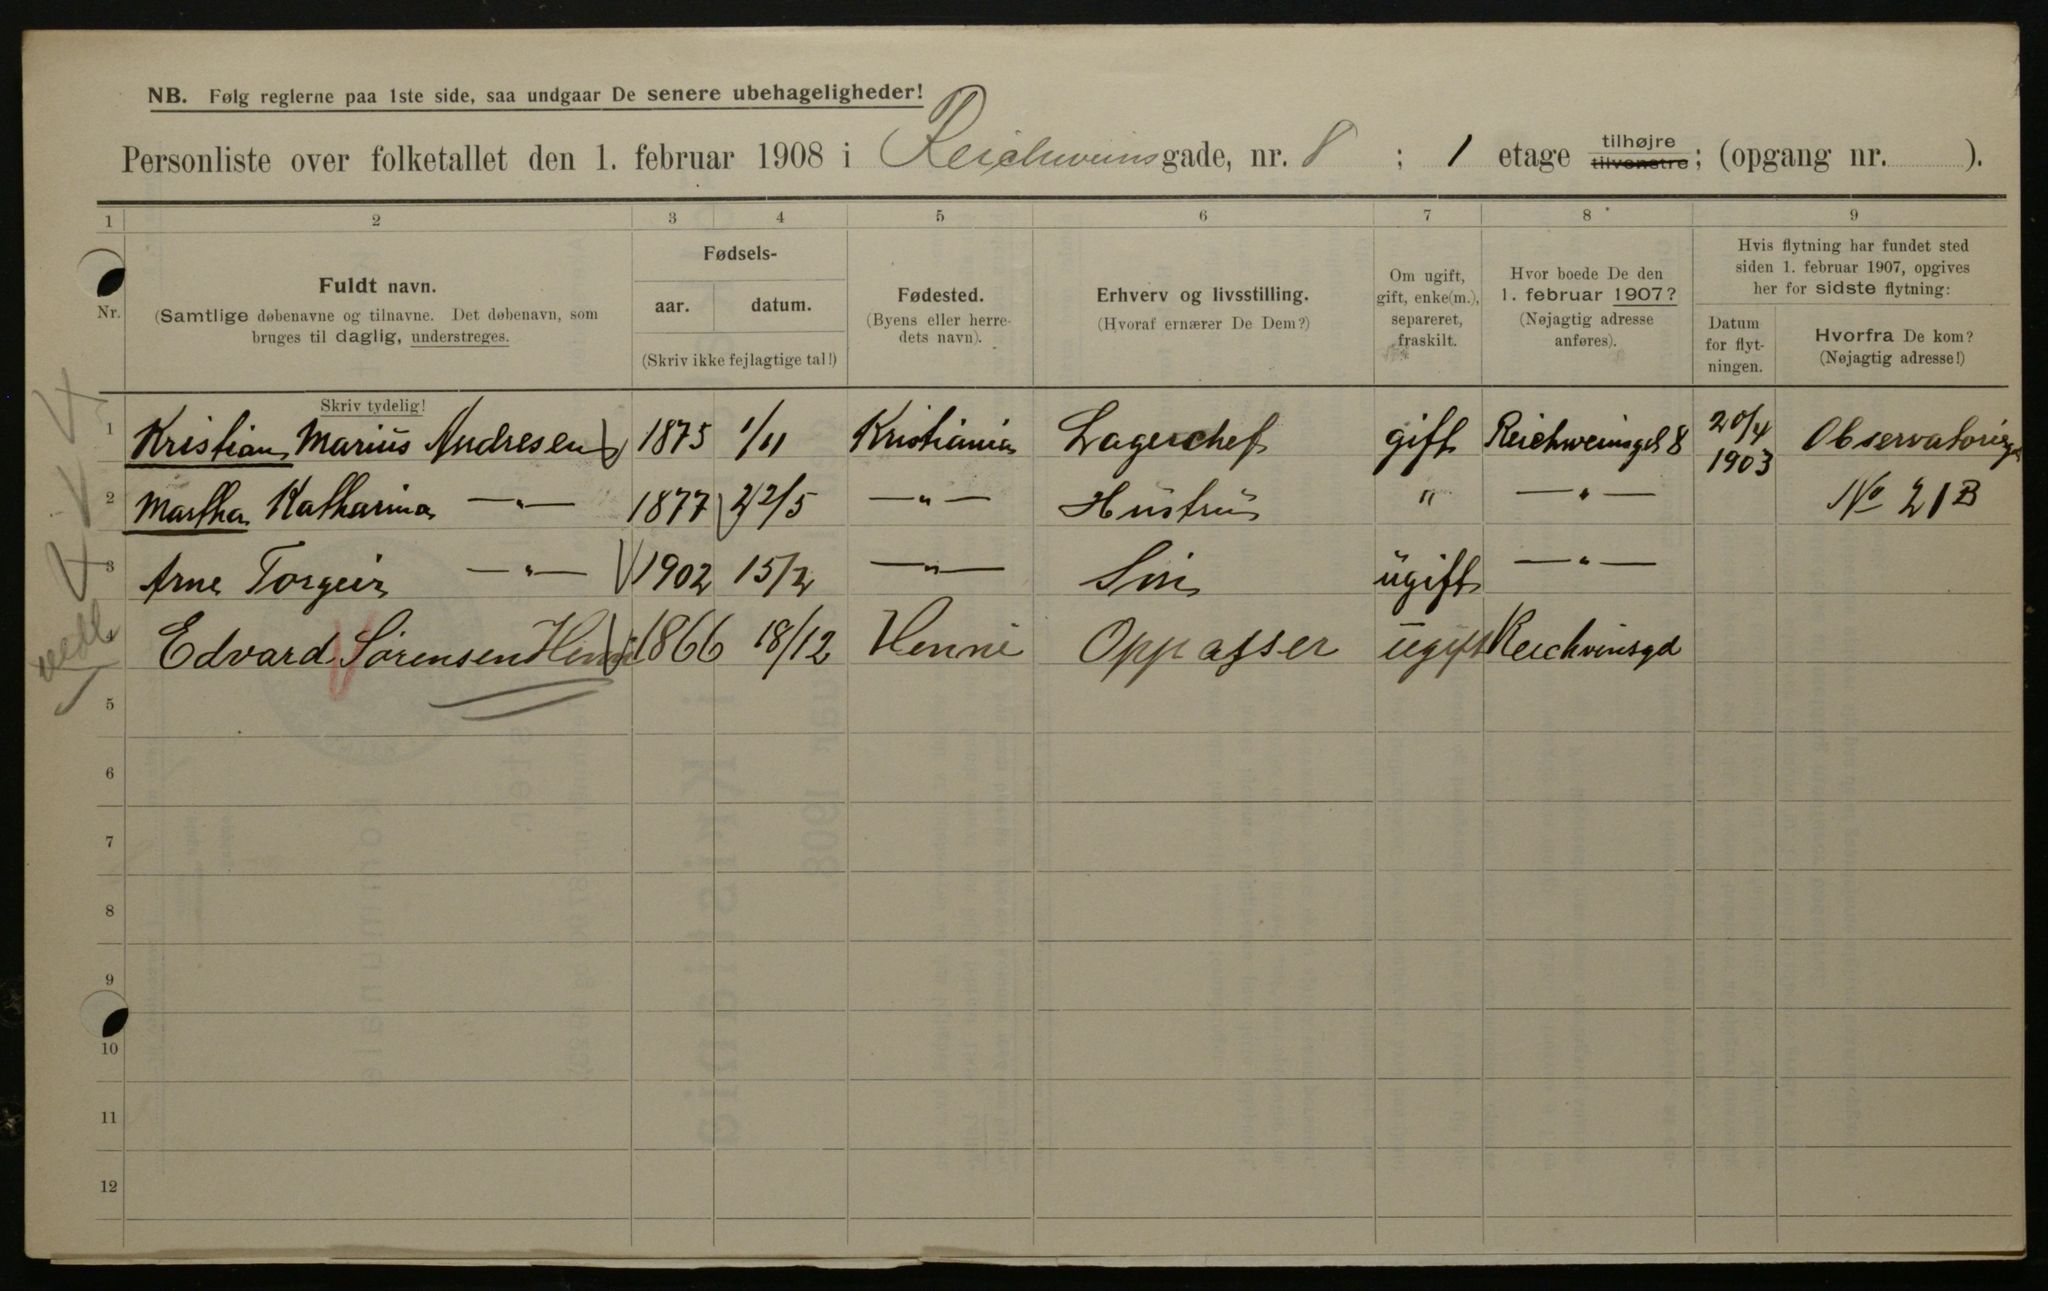 NB. Følg reglerne paa 1ste side, saa undgaar De senere ubehageligheder!
Personliste over folketallet den 1. februar 1908 i Reichweinsgade, nr. 8 ; 1 etage tilhøjre tilvenstre; (opgang nr. ).
1 2 3 4 5 6 7 8 9
Nr.
Fuldt navn.
(Samtlige døbenavne og tilnavne. Det døbenavn, som
bruges til daglig, understreges.
Skriv tydelig!
Fødsels-
aar. datum.
(Skriv ikke fejlagtige tal!)
Fødested.
(Byens eller herre-
dets navn).
Erhverv og livsstilling.
(Hvoraf ernærer De Dem?)
Om ugift,
gift, enke(m.),
separeret,
fraskilt.
Hvor boede De den
1. februar 1907?
(Nøjagtig adresse
anføres).
Hvis flytning har fundet sted
siden 1. februar 1907, opgives
her for sidste flytning:
Datum
for flyt-
ningen.
Hvorfra De kom?
(Nøjagtig adresse!)
1 Kristian Marius Andresen 1875 1/11 Kristiania Lagerchef gift Reichweinsgd 8 20/4 1903 Observatoriegd
2 Martha Katharina —"— 1877 22/5 —"— Hustru " —"— No 21 B
3 Arne Torgeir —"— 1902 15/2 —"— Søn ugift —"—
Edvard Sørensen 1866 18/12 Oppasser ugift Reichvinsgd
5
6
7
8
9
10
11
12